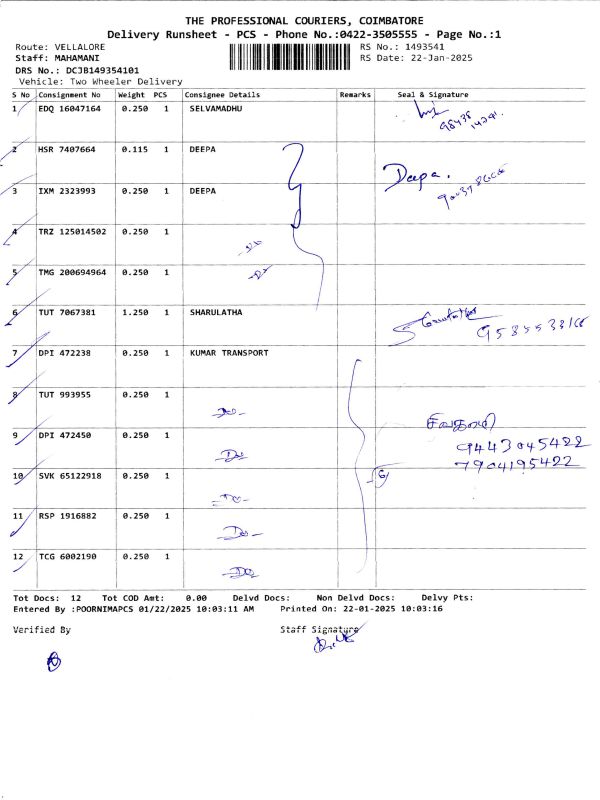 THE PROFESSIONAL COURIERS, COIMBATORE
Delivery Runsheet - PCS - Phone No.:0422-3505555 - Page No.:1
Route: VELLALORE RS No.: 1493541
Staff: MAHAMANI RS Date: 22-Jan-2025
DRS No.: DCJB149354101
Vehicle: Two Wheeler Delivery
S No Consignment No Weight PCS Consignee Details Remarks Seal & Signature
1 EDQ 16047164 0.250 1 SELVAMADHU
2 HSR 7407664 0.115 1 DEEPA
Deepa.
3 IXM 2323993 0.250 1 DEEPA
4 TRZ 125014502 0.250 1
-Do-
5 TMG 200694964 0.250 1
-Do-
6 TUT 7067381 1.250 1 SHARULATHA
7 DPI 472238 0.250 1 KUMAR TRANSPORT
8 TUT 993955 0.250 1
-Do-
9 DPI 472450 0.250 1
9443045422
-Do-
7904195422
10 SVK 65122918 0.250 1
-Do-
11 RSP 1916882 0.250 1
-Do-
12 TCG 6002190 0.250 1
-Do-
Tot Docs: 12 Tot COD Amt: 0.00 Delvd Docs: Non Delvd Docs: Delvy Pts:
Entered By :POORNIMAPCS 01/22/2025 10:03:11 AM Printed On: 22-01-2025 10:03:16
Verified By Staff Signature